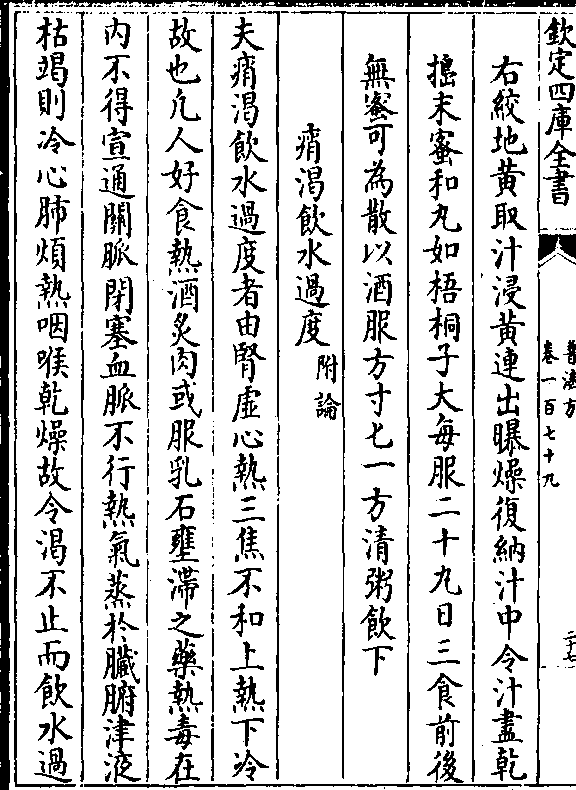 欽定四庫全書
普濟方
卷一百七十九
二十七
右絞地黄取汁浸黄連出曝燥復納汁中令汁盡乾
搗末蜜和丸如梧桐子大每服二十九日三食前後
無蜜可為散以酒服方寸匕一方清粥飲下
痟渴飲水過度附論
夫痟渴飲水過度者由腎虛心熱三焦不和上熱下冷
故也凢人好食熱酒炙肉或服乳石壅滯之藥熱毒在
内不得宣通關脈閉塞血脈不行熱氣蒸於臟腑津液
枯竭則冷心肺煩熱咽喉乾燥故令渴不止而飲水過